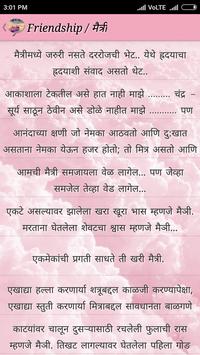 3:01 PM
VoLTE
Friendship / मैत्री
मैत्रीमध्ये जरुरी नसते दररोजची भेट.. येथे हृदयाचा
हृदयाशी संवाद असतो थेट..
आकाशाला टेकतील असे हात नाही माझे ......... चंद्र –
सूर्य साठून ठेवीन असे डोळे नाहीत माझे ...... पण
आनंदाच्या क्षणी जो नेमका आठवतो आणि दुःखात
असताना नेमका येऊन हजर होतो; तो मित्र असतो आणि
आमची मैत्री समजायला वेळ लागेल... पण जेव्हा
समजेल तेव्हा वेड लागेल...
एकटे असल्यावर झालेला खरा खुरा भास म्हणजे मैञी.
मरताना घेतलेला शेवटचा श्वास म्हणजे मैञी...
एकमेकांची प्रगती साधते ती खरी मैत्री.
एखाद्या हल्ला करणार्या शत्रूबद्दल काळजी करण्यापेक्षा,
एखाद्या स्तुती करणार्या मित्राबद्दल सावधानता बाळगणे
काटयांवर चालून दुसर्‍यासाठी रचलेली फुलाची रास
म्हणजे मैञी. तिखट लागल्यावर घेतलेला पहिला गोड